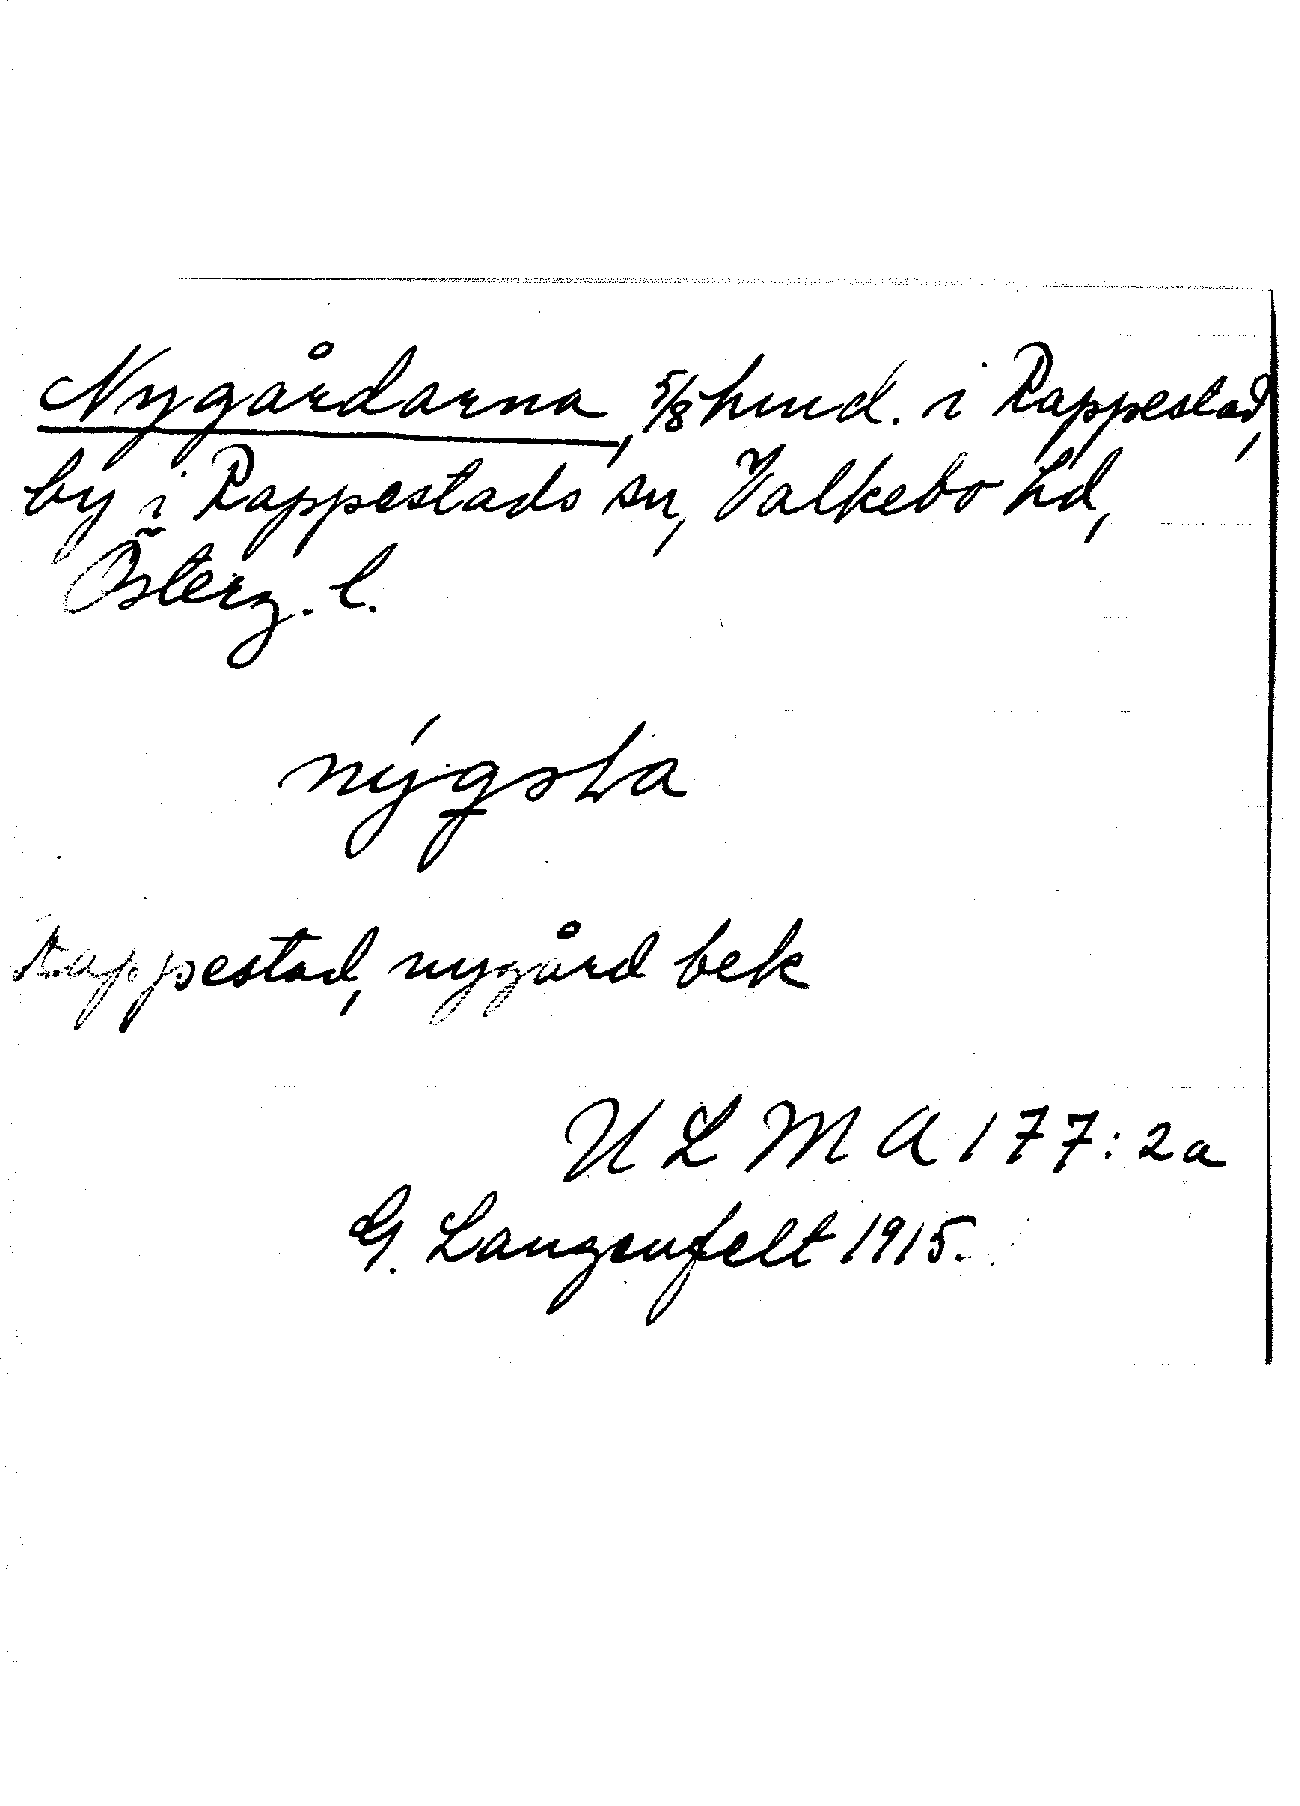 Nygårdarna, 5/8 hmd. i Rappestad,
by i Rappestads sn, Valkebo hd,
Österg. l.
Rappestad, nygård bek
ULMA 177:2a
G. Langenfelt 1915.